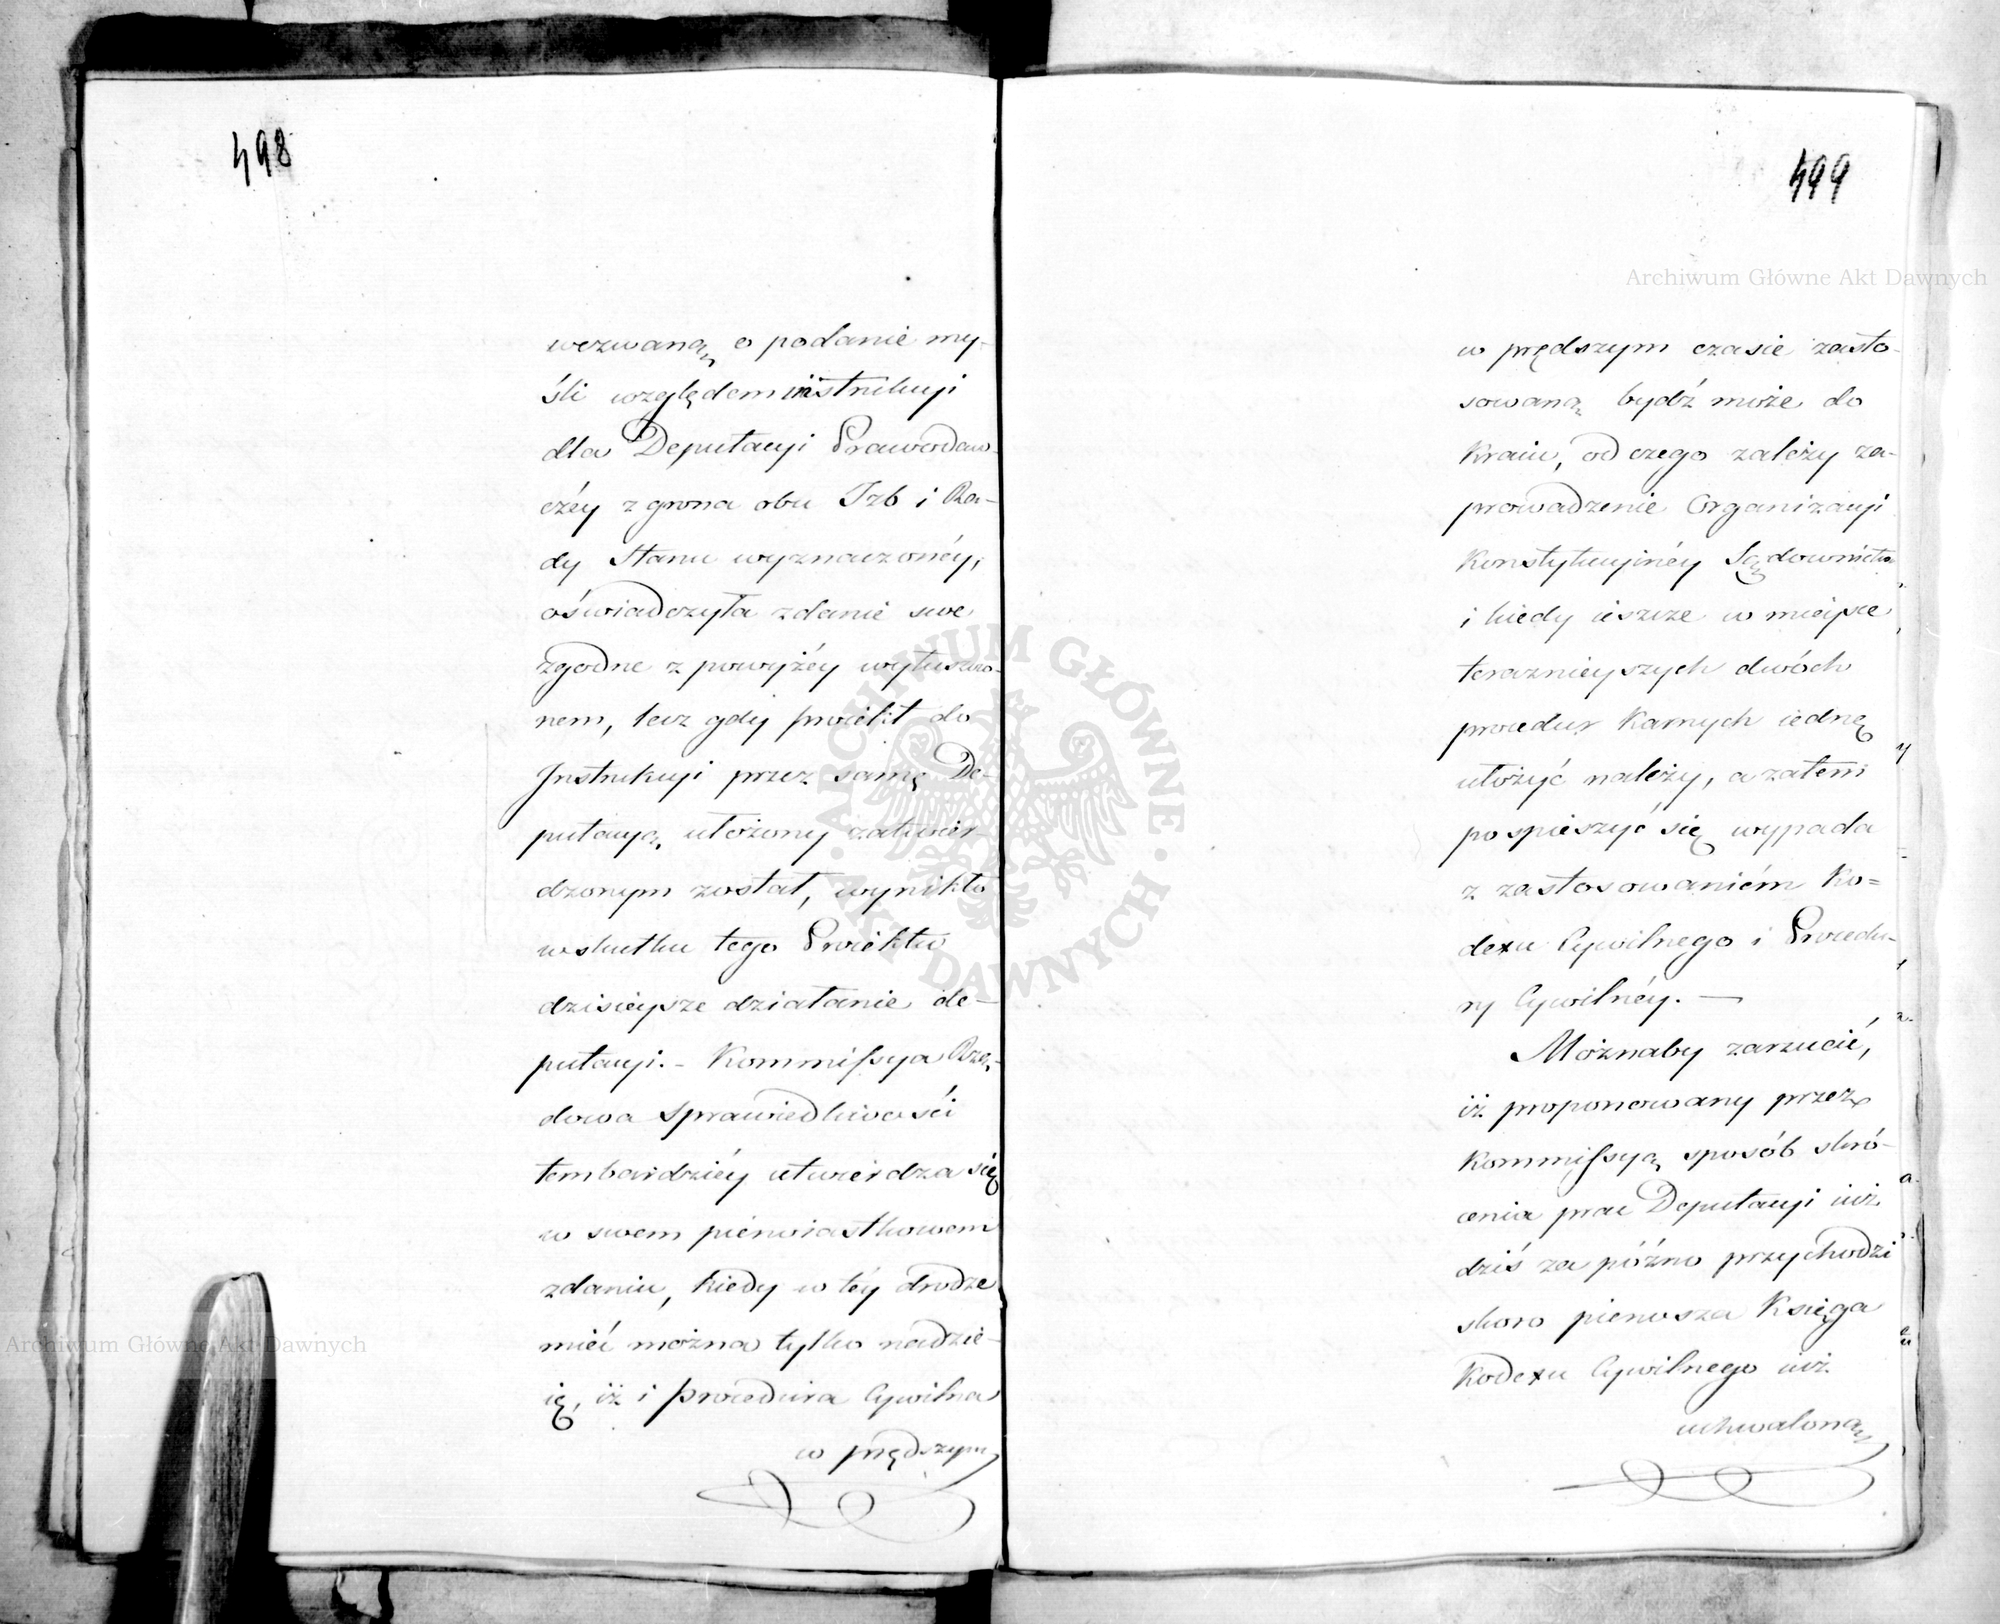 498
wezwaną o podanie my-
śli względem instrukcyi
dla Deputacyi Prawodaw-
czéy z grona obu Izb i Ra-
dy Stanu wyznaczonéy,
oświadczyła zdanie swe
zgodne z powyżéy wyłuszczo-
nem, lecz gdy proiekt do
Instrukcyi przez samę De-
putacyą ułożony zatwier-
dzonym został, wynikło
w skutku tego Proiektu
dzisieysze działanie de-
putacyi. - Kommissya Rzą-
dowa Sprawiedliwości
tembardziéy utwierdza się
w swem pierwiastkowem
zdaniu, kiedy w téy drodze
mieć można tylko nadzie-
ię, iż i procedura Cywilna
w prędszym
499
w prędszym czasie zasto-
sowaną bydź może do
Kraiu, od czego zależy za-
prowadzenie Organizacyi
Konstytucyinéy Sądownictwa
i kiedy ieszcze w mieysce
teraznieyszych dwóch
procedur Karnych iednę
ułożyć należy, a zatem
pospieszyć się wypada
z zastosowaniém Ko=
dexu Cywilnego i Procedu-
ry Cywilnéy. —
Możnaby zarzucić,
iż proponowany przez
Kommissyą sposób skró-
cenia prac Deputacyi iuż
dziś za późno przychodzi
skoro pierwsza Księga
Kodexu Cywilnego iuż
uchwalona
Archiwum Główne Akt Dawnych
Archiwum Główne Akt Dawnych
· ARCHIWUM GŁÓWNE · AKT DAWNYCH